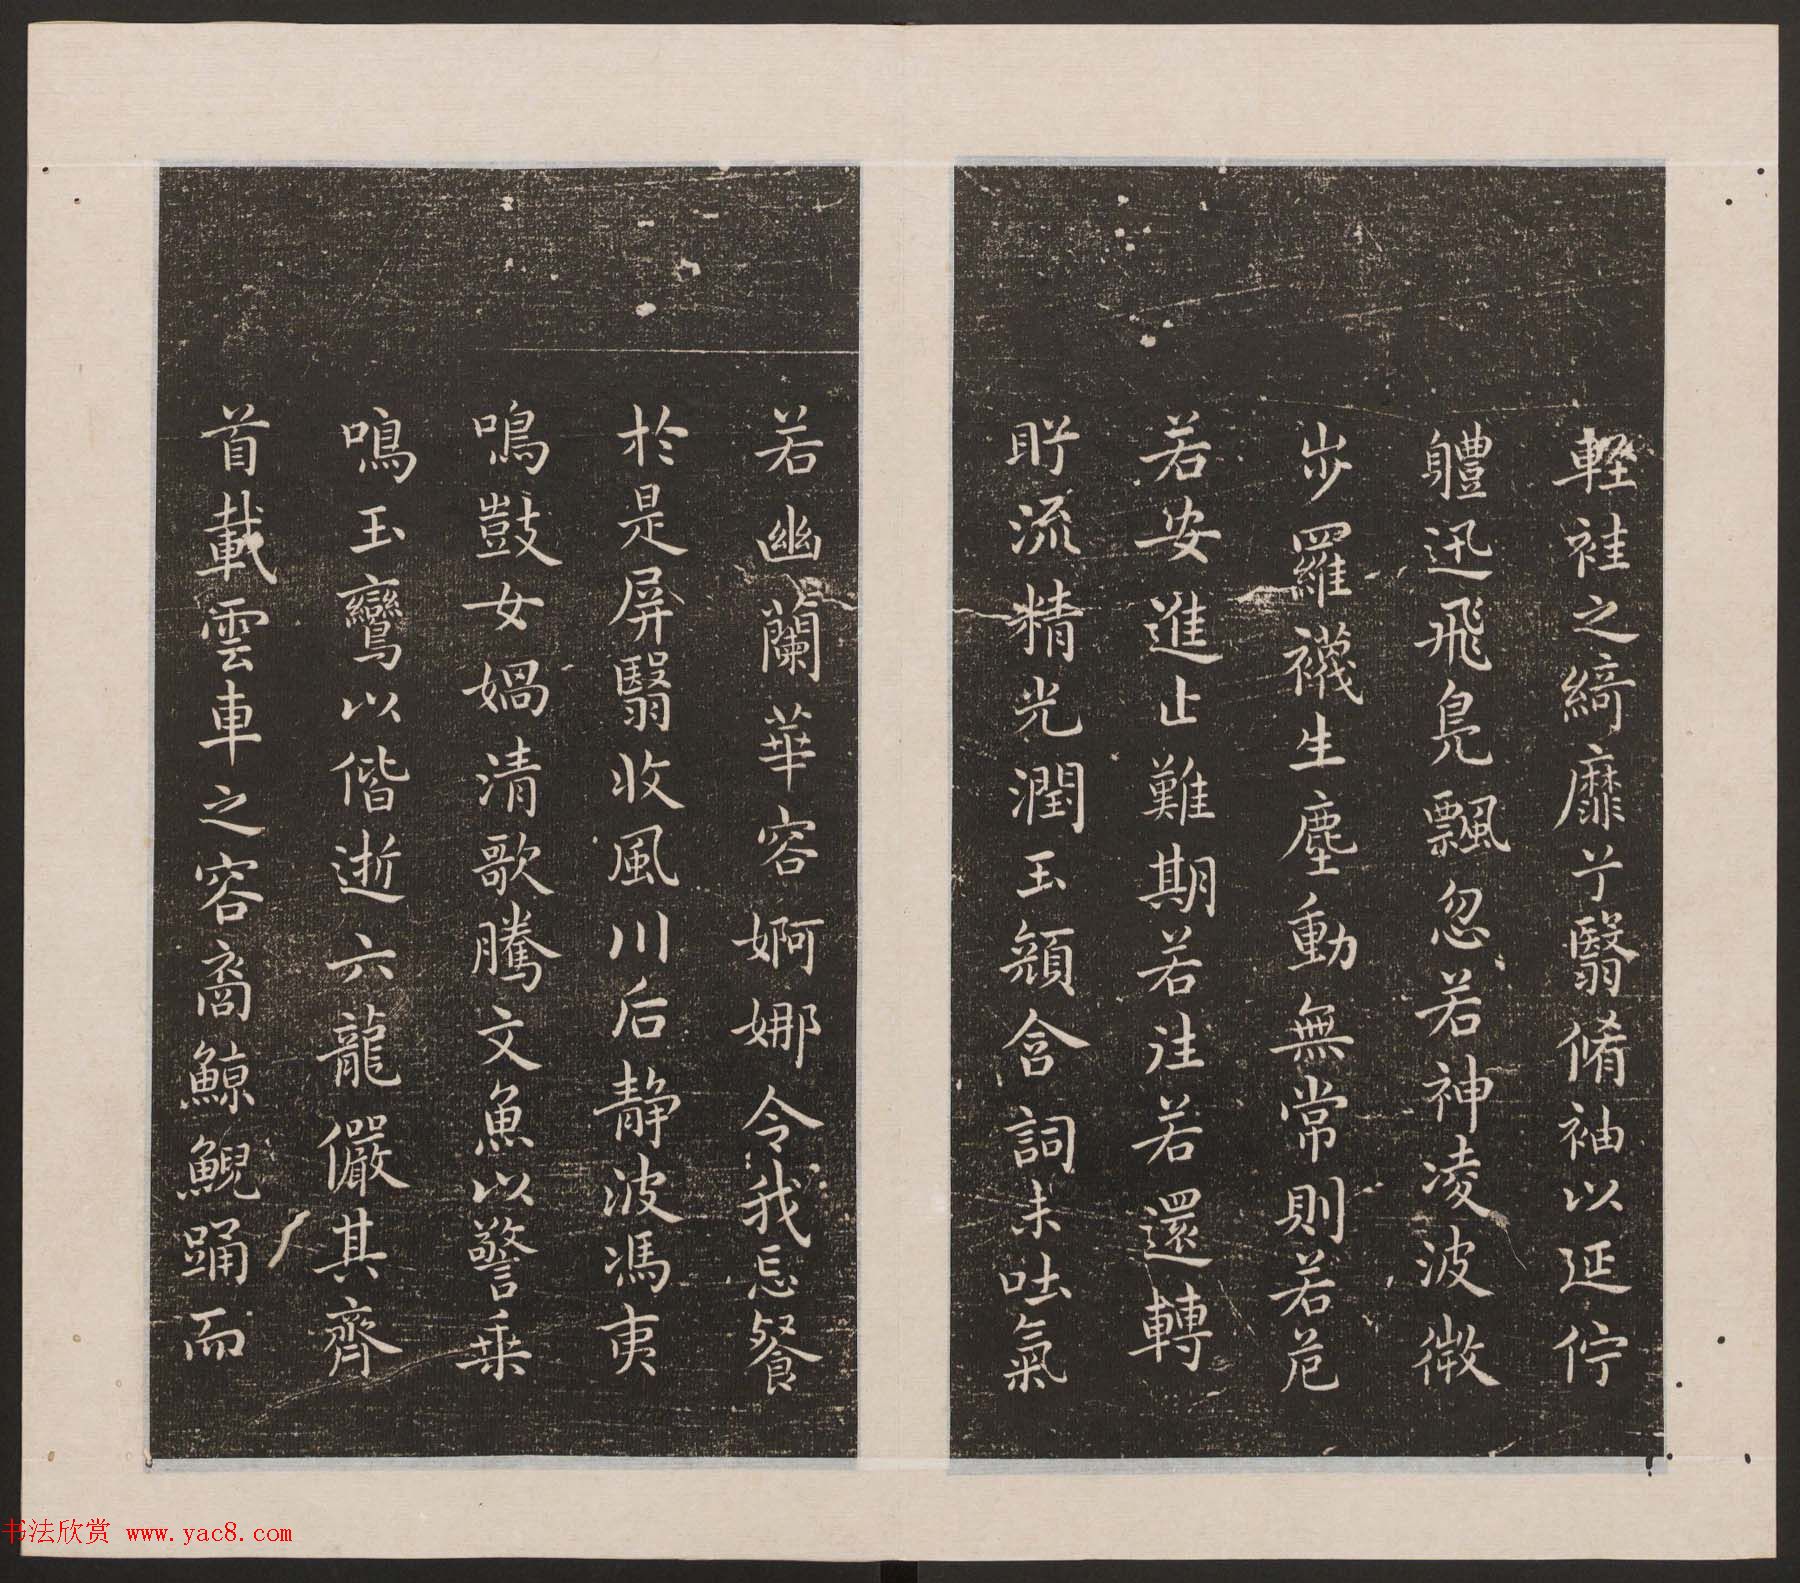 輕袿之綺靡兮翳脩袖以延佇
軆迅飛鳧飄忽若神凌波微
步羅襪生塵動無常則若危
若安進止難期若往若還轉
盻流精光潤玉顏含詞未吐氣
若幽蘭華容婀娜令我忘餐
於是屏翳收風川后靜波馮夷
鳴鼓女媧清歌騰文魚以警乗
鳴玉鸞以偕逝六龍儼其齊
首載雲車之容裔鯨鯢踊而
书法欣赏 www.yac8.com